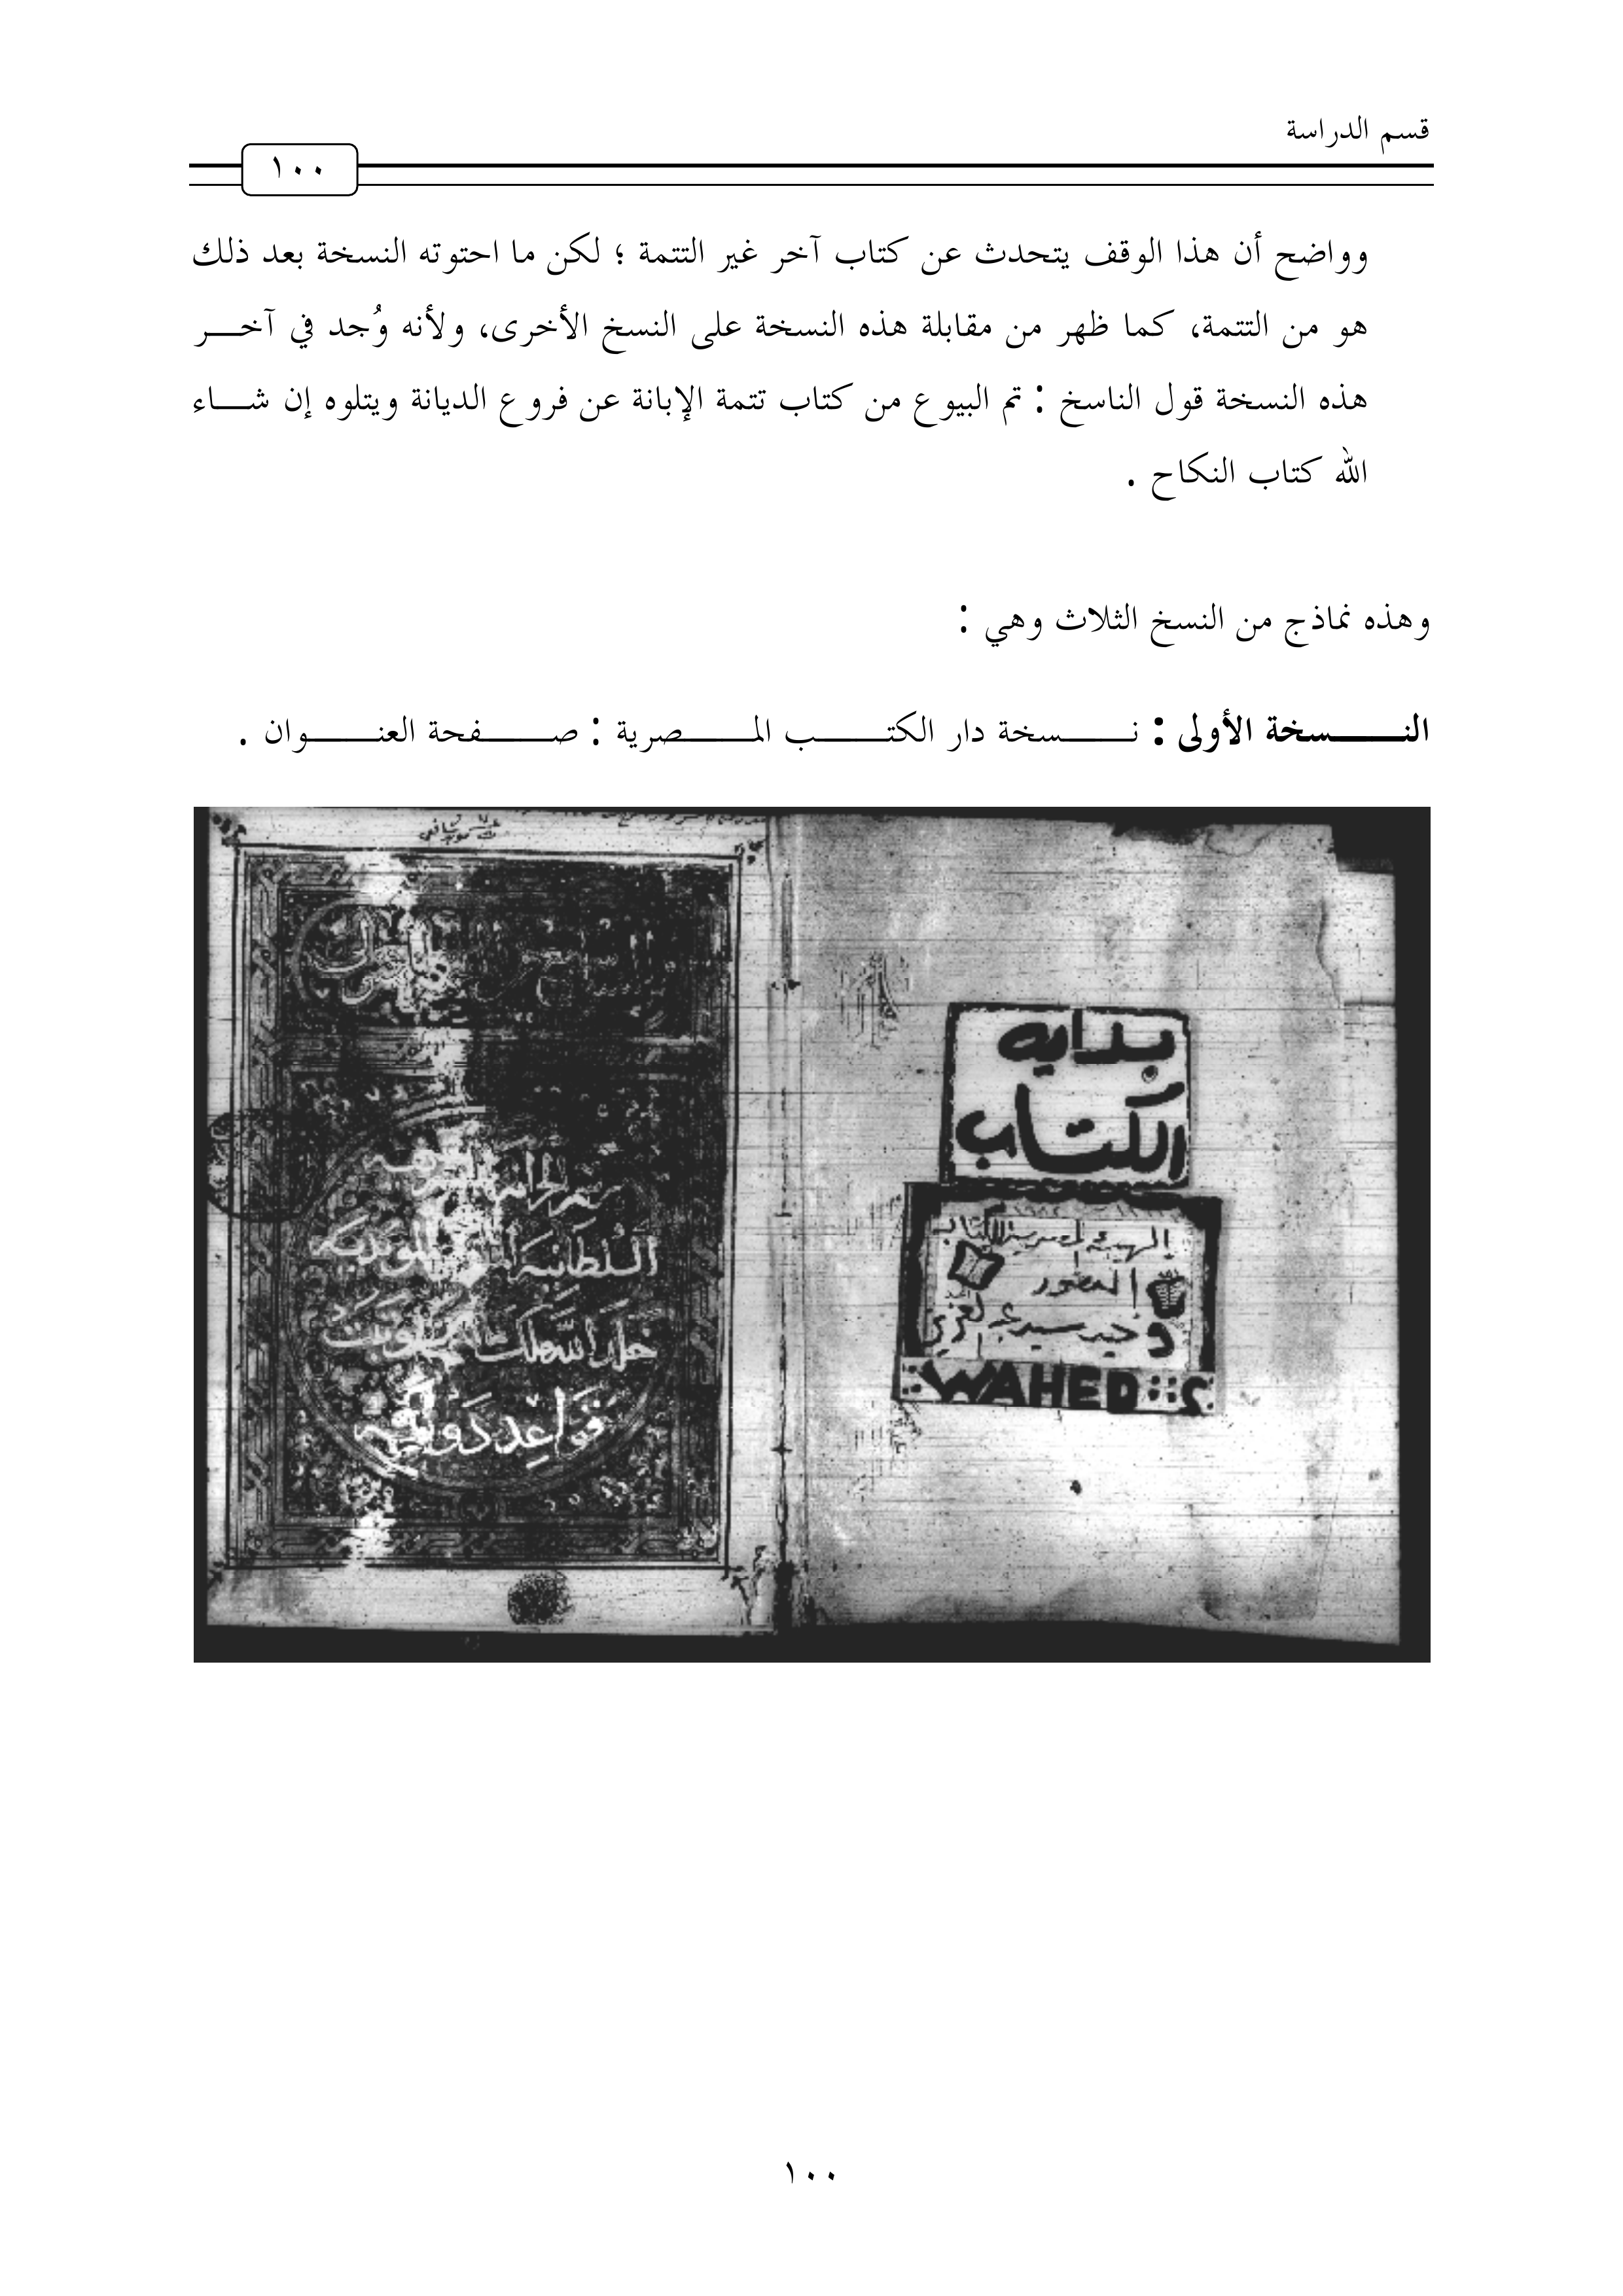 قسم الدراسة
١٠٠
وواضح أن هذا الوقف يتحدث عن كتاب آخر غير التتمة ؛ لكن ما احتوته النسخة بعد ذلك
هو من التتمة، كما ظهر من مقابلة هذه النسخة على النسخ الأخرى، ولأنه وُجد في آخر
هذه النسخة قول الناسخ : تم البيوع من كتاب تتمة الإبانة عن فروع الديانة ويتلوه إن شاء
الله كتاب النكاح .
وهذه نماذج من النسخ الثلاث وهي :
النسخة الأولى : نسخة دار الكتب المصرية : صفحة العنوان .
بدايه
الكتاب
الهيئه
المصور
وحيد سيد
WAHED
قواعد
١٠٠